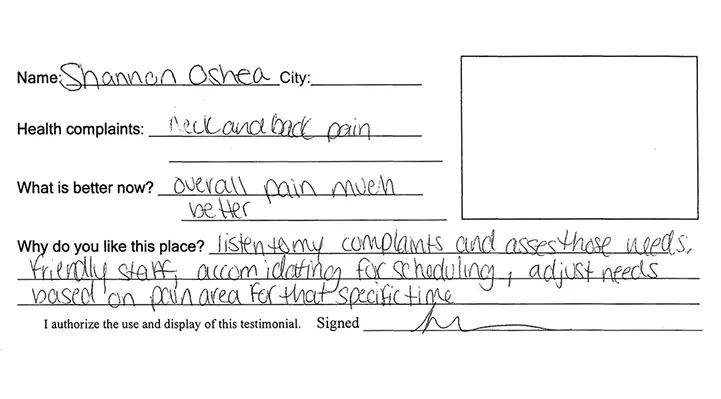 Name: Shannon Oshea City:
Health complaints: neck and back pain
What is better now? overall pain much
better
Why do you like this place? listen to my complaints and asses those needs.
friendly staff, accomidating for scheduling, adjust needs
based on pain area for that specific time
I authorize the use and display of this testimonial. Signed